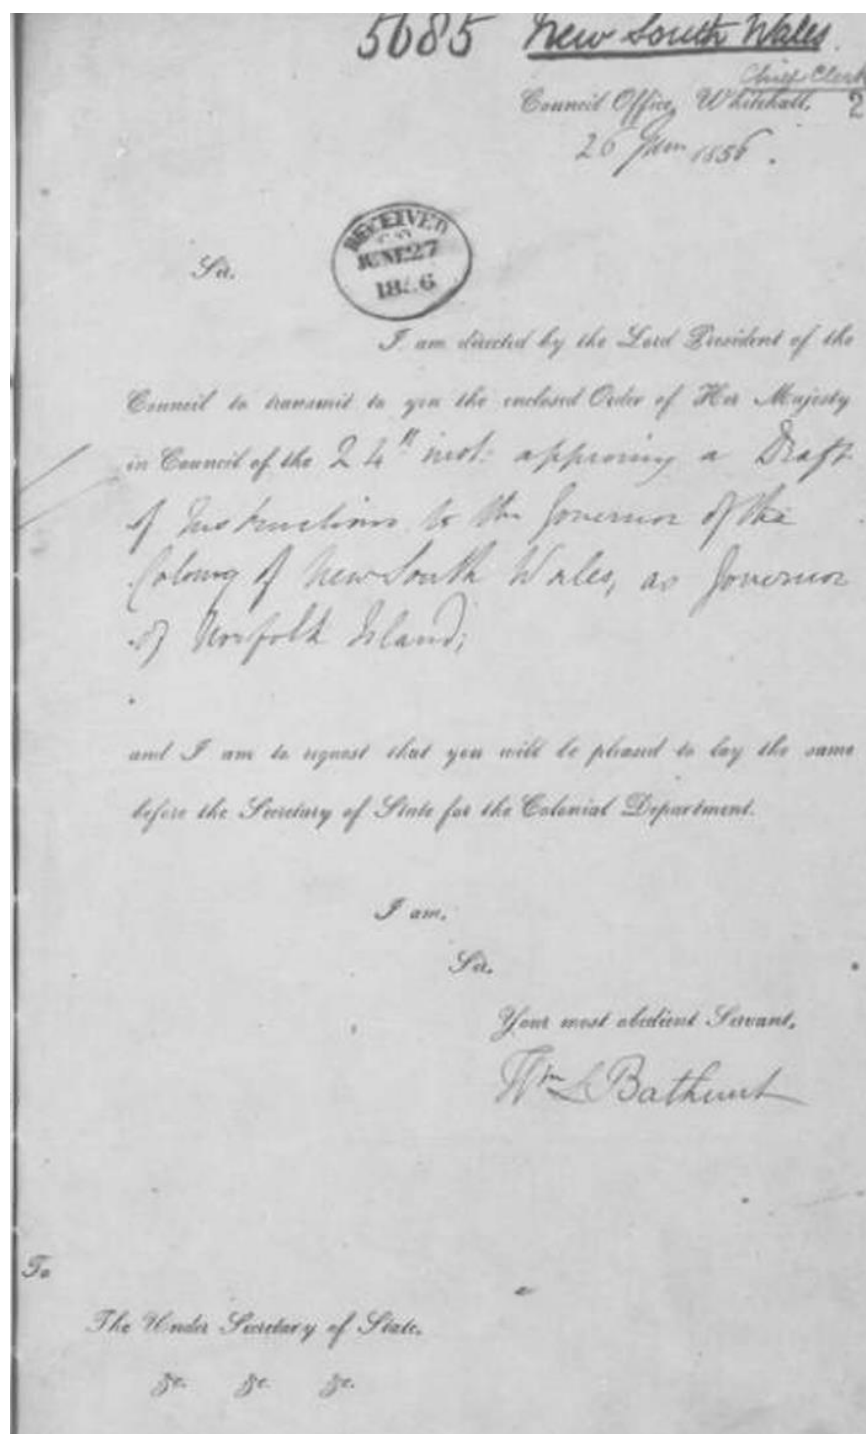 5685 New South Wales
Chief Clerk
Council Office, Whitehall, 2
26 June 1856.
RECEIVED
JUNE 27
1856
Sir,
I am directed by the Lord President of the
Council to transmit to you the enclosed Order of Her Majesty
in Council of the 24th inst: approving a Draft
of Instructions to the Governor of the
Colony of New South Wales, as Governor
of Norfolk Island;
and I am to request that you will be pleased to lay the same
before the Secretary of State for the Colonial Department.
I am,
Sir,
Your most obedient Servant,
Wm L Bathurst
To
The Under Secretary of State,
&c. &c. &c.